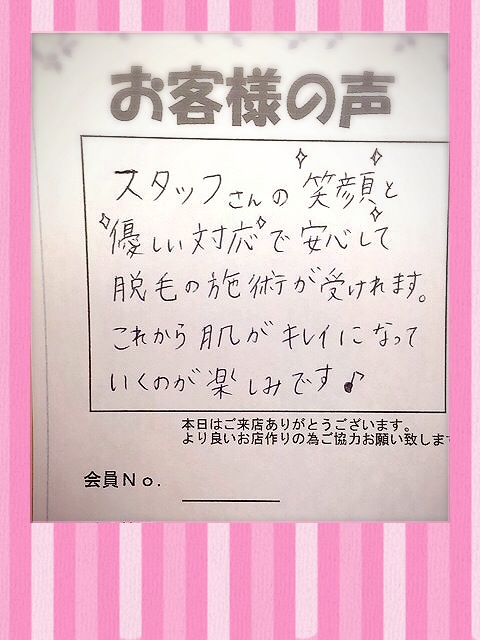 お客様の声
スタッフさんの笑顔と
優しい対応で安心して
脱毛の施術が受けれます。
これから肌がキレイになって
いくのが楽しみです♪
本日はご来店ありがとうございます。
より良いお店作りの為ご協力お願い致しま
会員No.